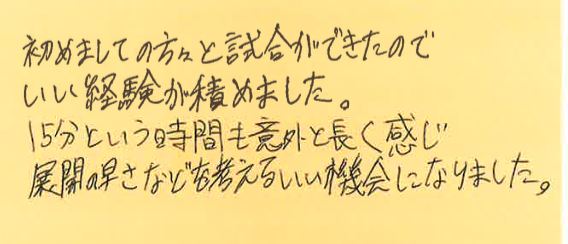 初めましての方々と試合ができたので
いい経験が積めました。
15分という時間も意外と長く感じ
展開の早さなどを考えるいい機会になりました。